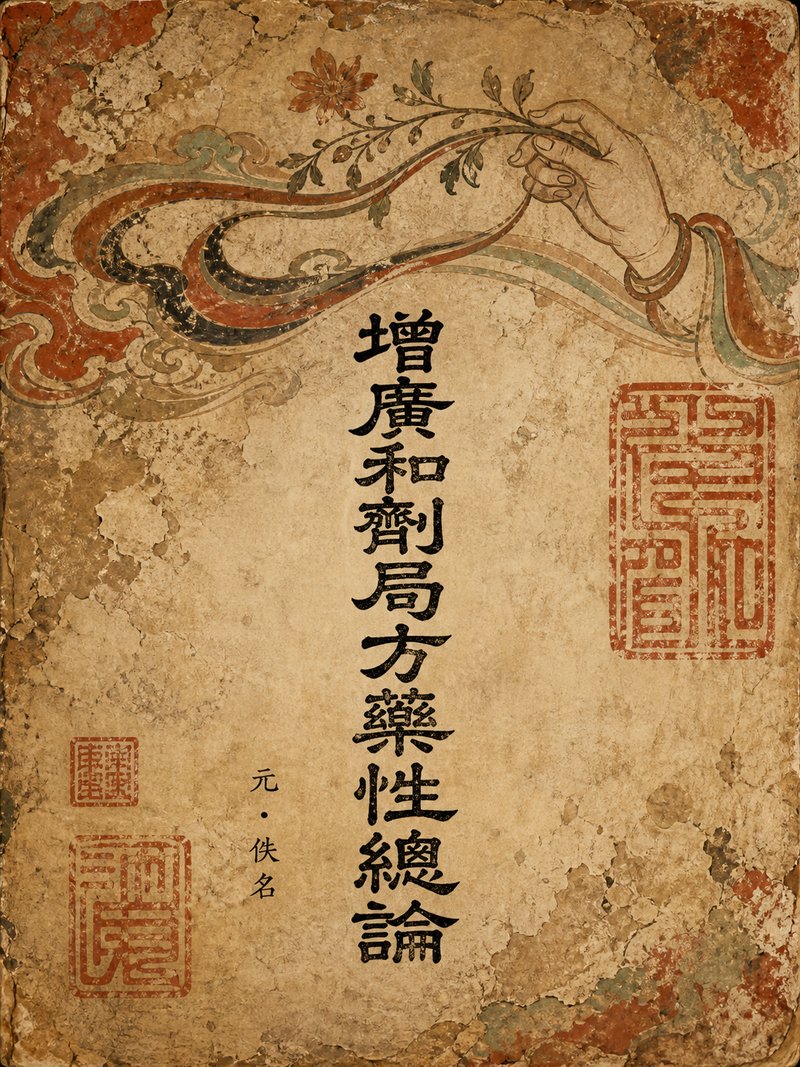 增廣和劑局方藥性總論
元·佚名